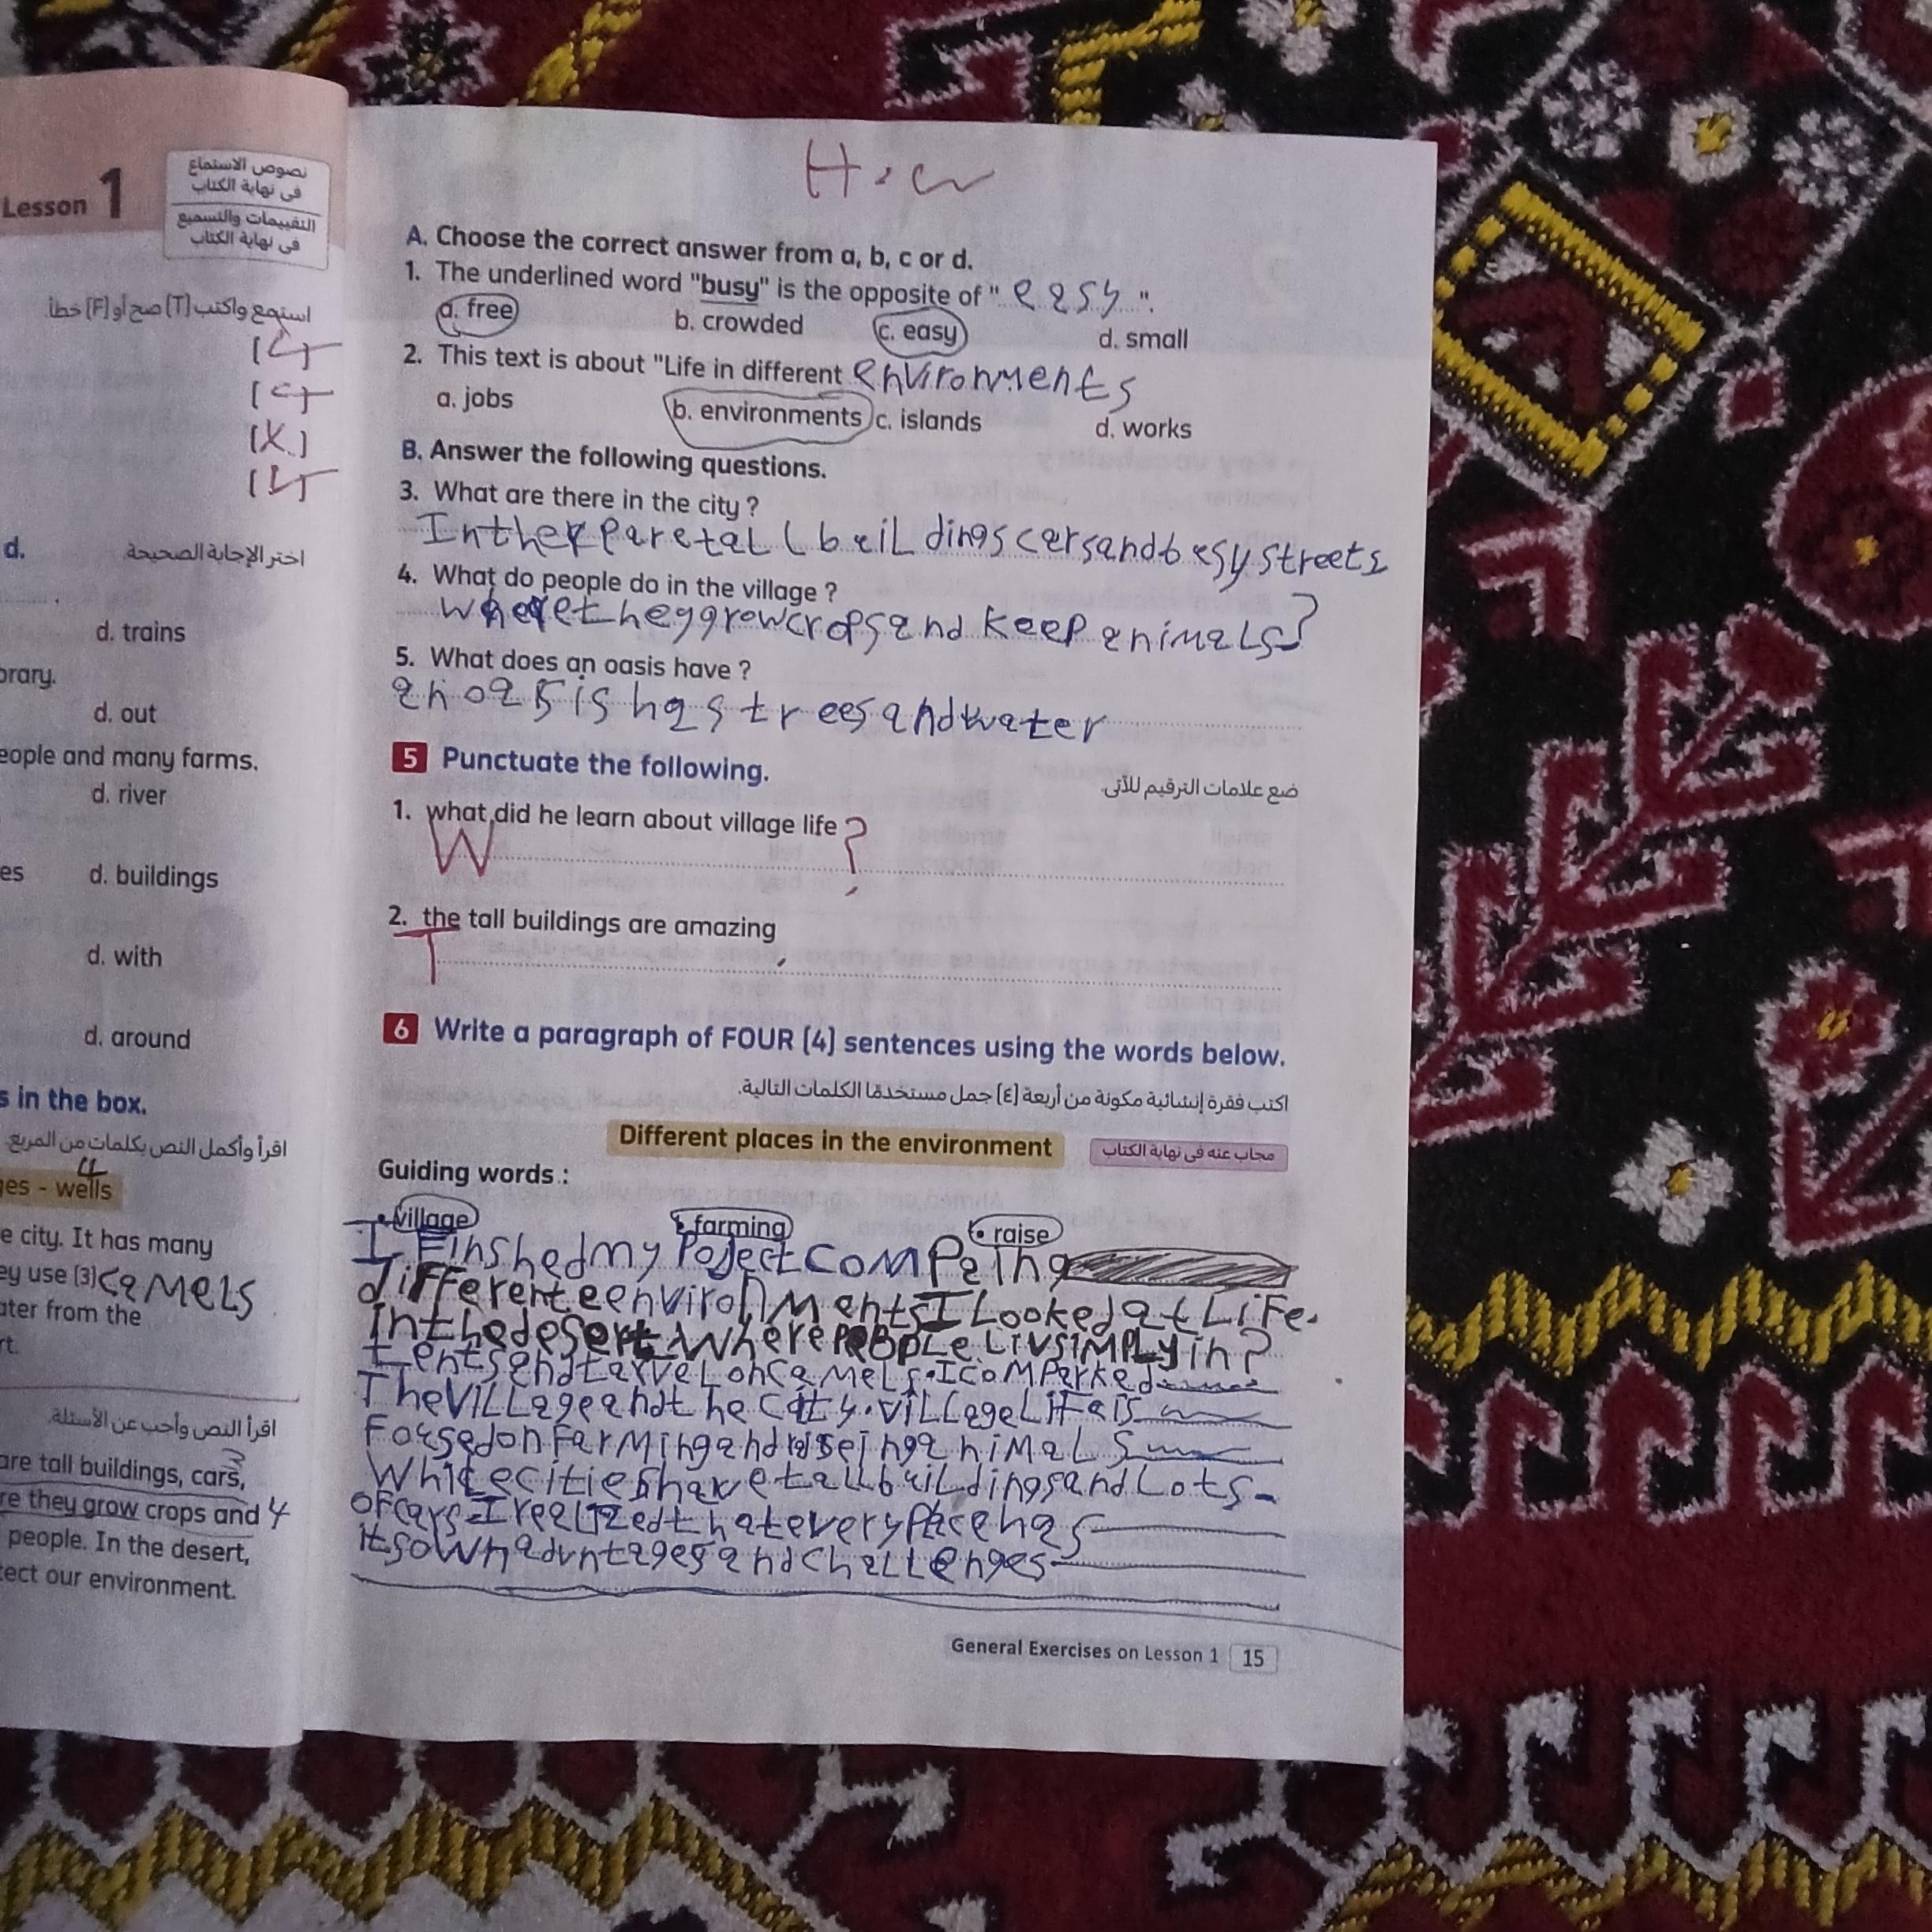 Lesson 1
نصوص الاستماع
فى نهاية الكتاب
التقييمات والتسميع
فى نهاية الكتاب
استمع واكتب [T] صح أو [F] خطأ.
d.
اختر الإجابة الصحيحة.
d. trains
brary.
d. out
eople and many farms.
d. river
es d. buildings
d. with
d. around
s in the box.
اقرأ وأكمل النص بكلمات من المربع.
ges - wells
e city. It has many
ey use (3) camels
ater from the
rt.
اقرأ النص وأجب عن الأسئلة.
are tall buildings, cars, 3
re they grow crops and 4
people. In the desert,
tect our environment.
H.w
A. Choose the correct answer from a, b, c or d.
1. The underlined word "busy" is the opposite of " easy ".
a. free b. crowded c. easy d. small
2. This text is about "Life in different environments
a. jobs b. environments c. islands d. works
B. Answer the following questions.
3. What are there in the city ?
In ther are tall beildings cars and besy streets
4. What do people do in the village ?
where they grow crops and keep animals?
5. What does an oasis have ?
an oasis has trees and water
5 Punctuate the following.
ضع علامات الترقيم للآتى.
1. what did he learn about village life ?
W
2. the tall buildings are amazing
T
6 Write a paragraph of FOUR (4) sentences using the words below.
اكتب فقرة إنشائية مكونة من أربعة [٤] جمل مستخدمًا الكلمات التالية.
Different places in the environment
مجاب عنه فى نهاية الكتاب
Guiding words :
• village • farming • raise
I Finshed my Poject
different eenvironments I Looked at LiFe.
In the desert where people Liv simply in?
tents on camels. I
The ViLLage and the city. viLLage Life is
on Farming and animals
cities have tall buildings and Lots
of cars I realized that every place has
its own and chaLLenges
General Exercises on Lesson 1 15